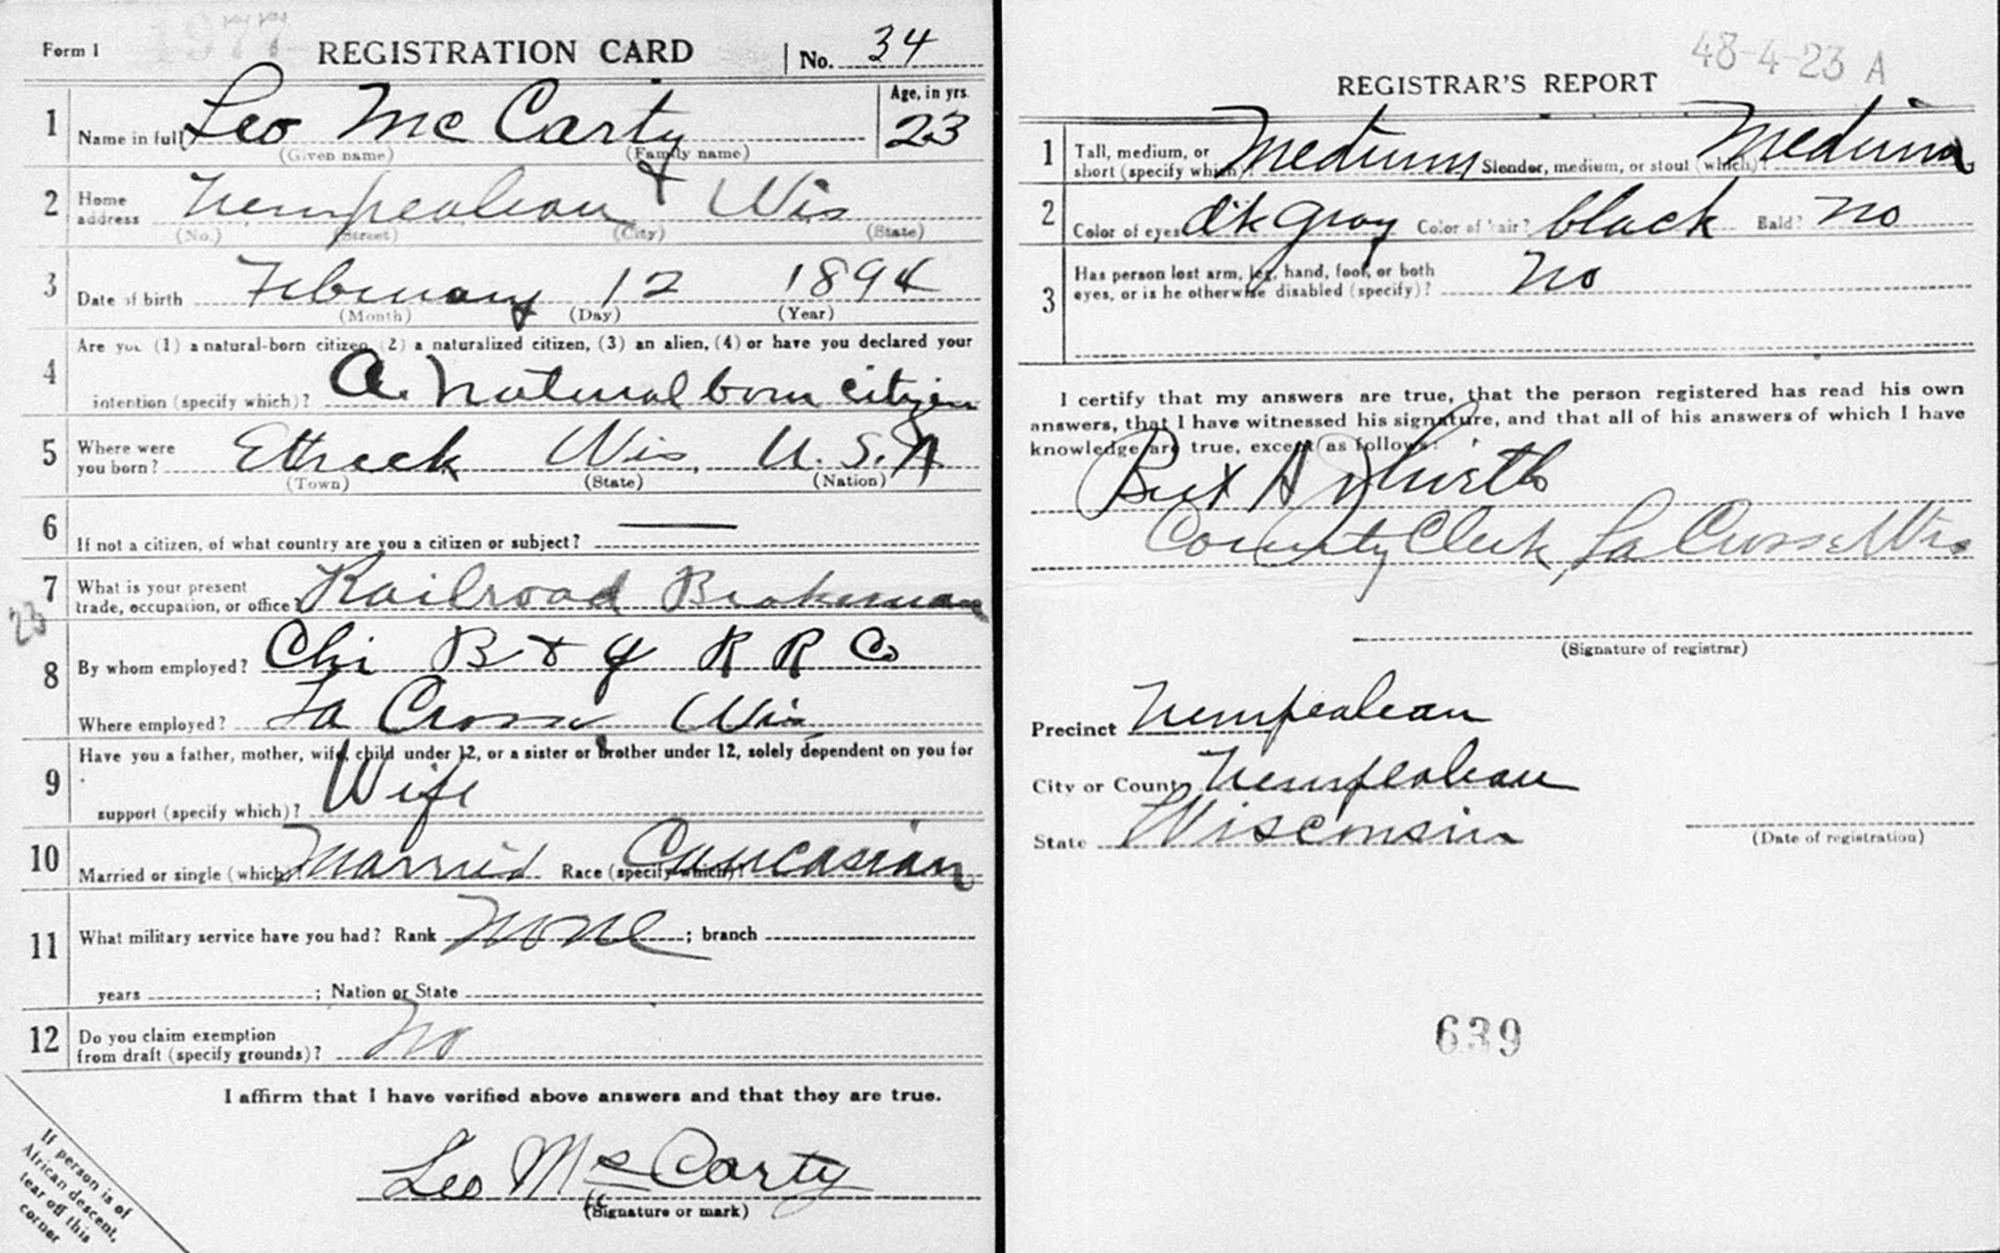 1977
Form 1 REGISTRATION CARD No. 34
1 Name in full Leo McCarty Age, in yrs. 23
(Given name) (Family name)
2 Home address Trempealeau Wis
(No.) (Street) (City) (State)
3 Date of birth February 12 1894
(Month) (Day) (Year)
4 Are you (1) a natural-born citizen, (2) a naturalized citizen, (3) an alien, (4) or have you declared your
intention (specify which)? A. natural born citizen
5 Where were you born? Ettrick Wis. U.S.A
(Town) (State) (Nation)
6 If not a citizen, of what country are you a citizen or subject? —
7 What is your present trade, occupation, or office? Railroad Brakeman
23
8 By whom employed? Chi B & Q R R Co
Where employed? La Crosse Wis
9 Have you a father, mother, wife, child under 12, or a sister or brother under 12, solely dependent on you for
support (specify which)? Wife
10 Married or single (which)? Married Race (specify which)? Caucasian
11 What military service have you had? Rank None ; branch
years ; Nation or State
12 Do you claim exemption from draft (specify grounds)? No
I affirm that I have verified above answers and that they are true.
Leo McCarty
(Signature or mark)
If person is of
African descent,
tear off this
corner
48-4-23 A
REGISTRAR'S REPORT
1 Tall, medium, or short (specify which)? Medium Slender, medium, or stout (which)? Medium
2 Color of eyes? d'k gray Color of hair? black Bald? No
3 Has person lost arm, leg, hand, foot, or both
eyes, or is he otherwise disabled (specify)? No
I certify that my answers are true, that the person registered has read his own
answers, that I have witnessed his signature, and that all of his answers of which I have
knowledge are true, except as follows:
A
County Clerk, La Crosse Wis
(Signature of registrar)
Precinct Trempealeau
City or County Trempealeau
State Wisconsin
(Date of registration)
639